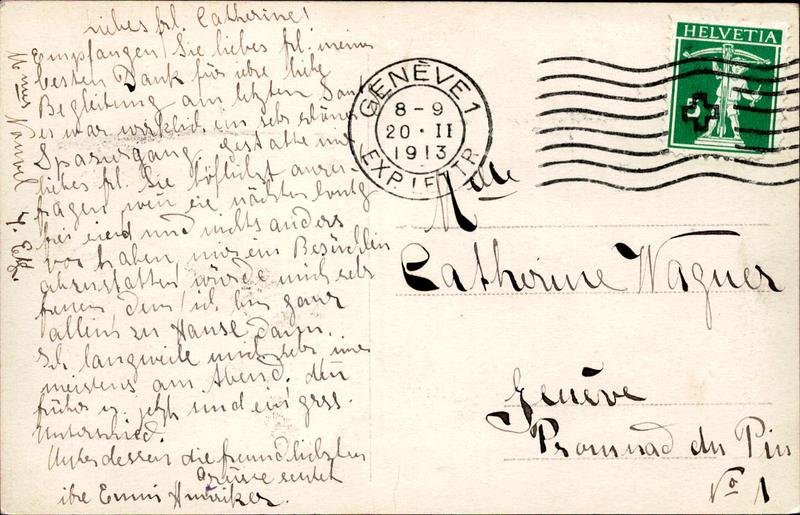 Liebes frl. Catherine!
Empfangen Sie liebes frl. meinen
besten Dank für ihre liebe
Begleitung am letzten Sont
es war wirklich ein sehr schöner
Spaziergang, gestatte mir
liebes frl. Sie höflichst anzu-
fragen wen sie nächsten Sontg
frei sind und nichts anders
vor haben, mir ein Besüchlein
abzustatten, würde mich sehr
freuen, den ich bin ganz
allein zu Hause dann.
Ich langweile mich sehr
meistens am Abend, den
früher u. jetzt sind ein gross.
Unterschied.
Unterdessen die freundlichsten
Grüsse sendet
ihre
4. Etg.
GENÈVE 1
8-9
20·II
1913
EXP. LETTR.
HELVETIA
Mlle
Catherine Wagner
Genève
Promnad du Pin
No 1